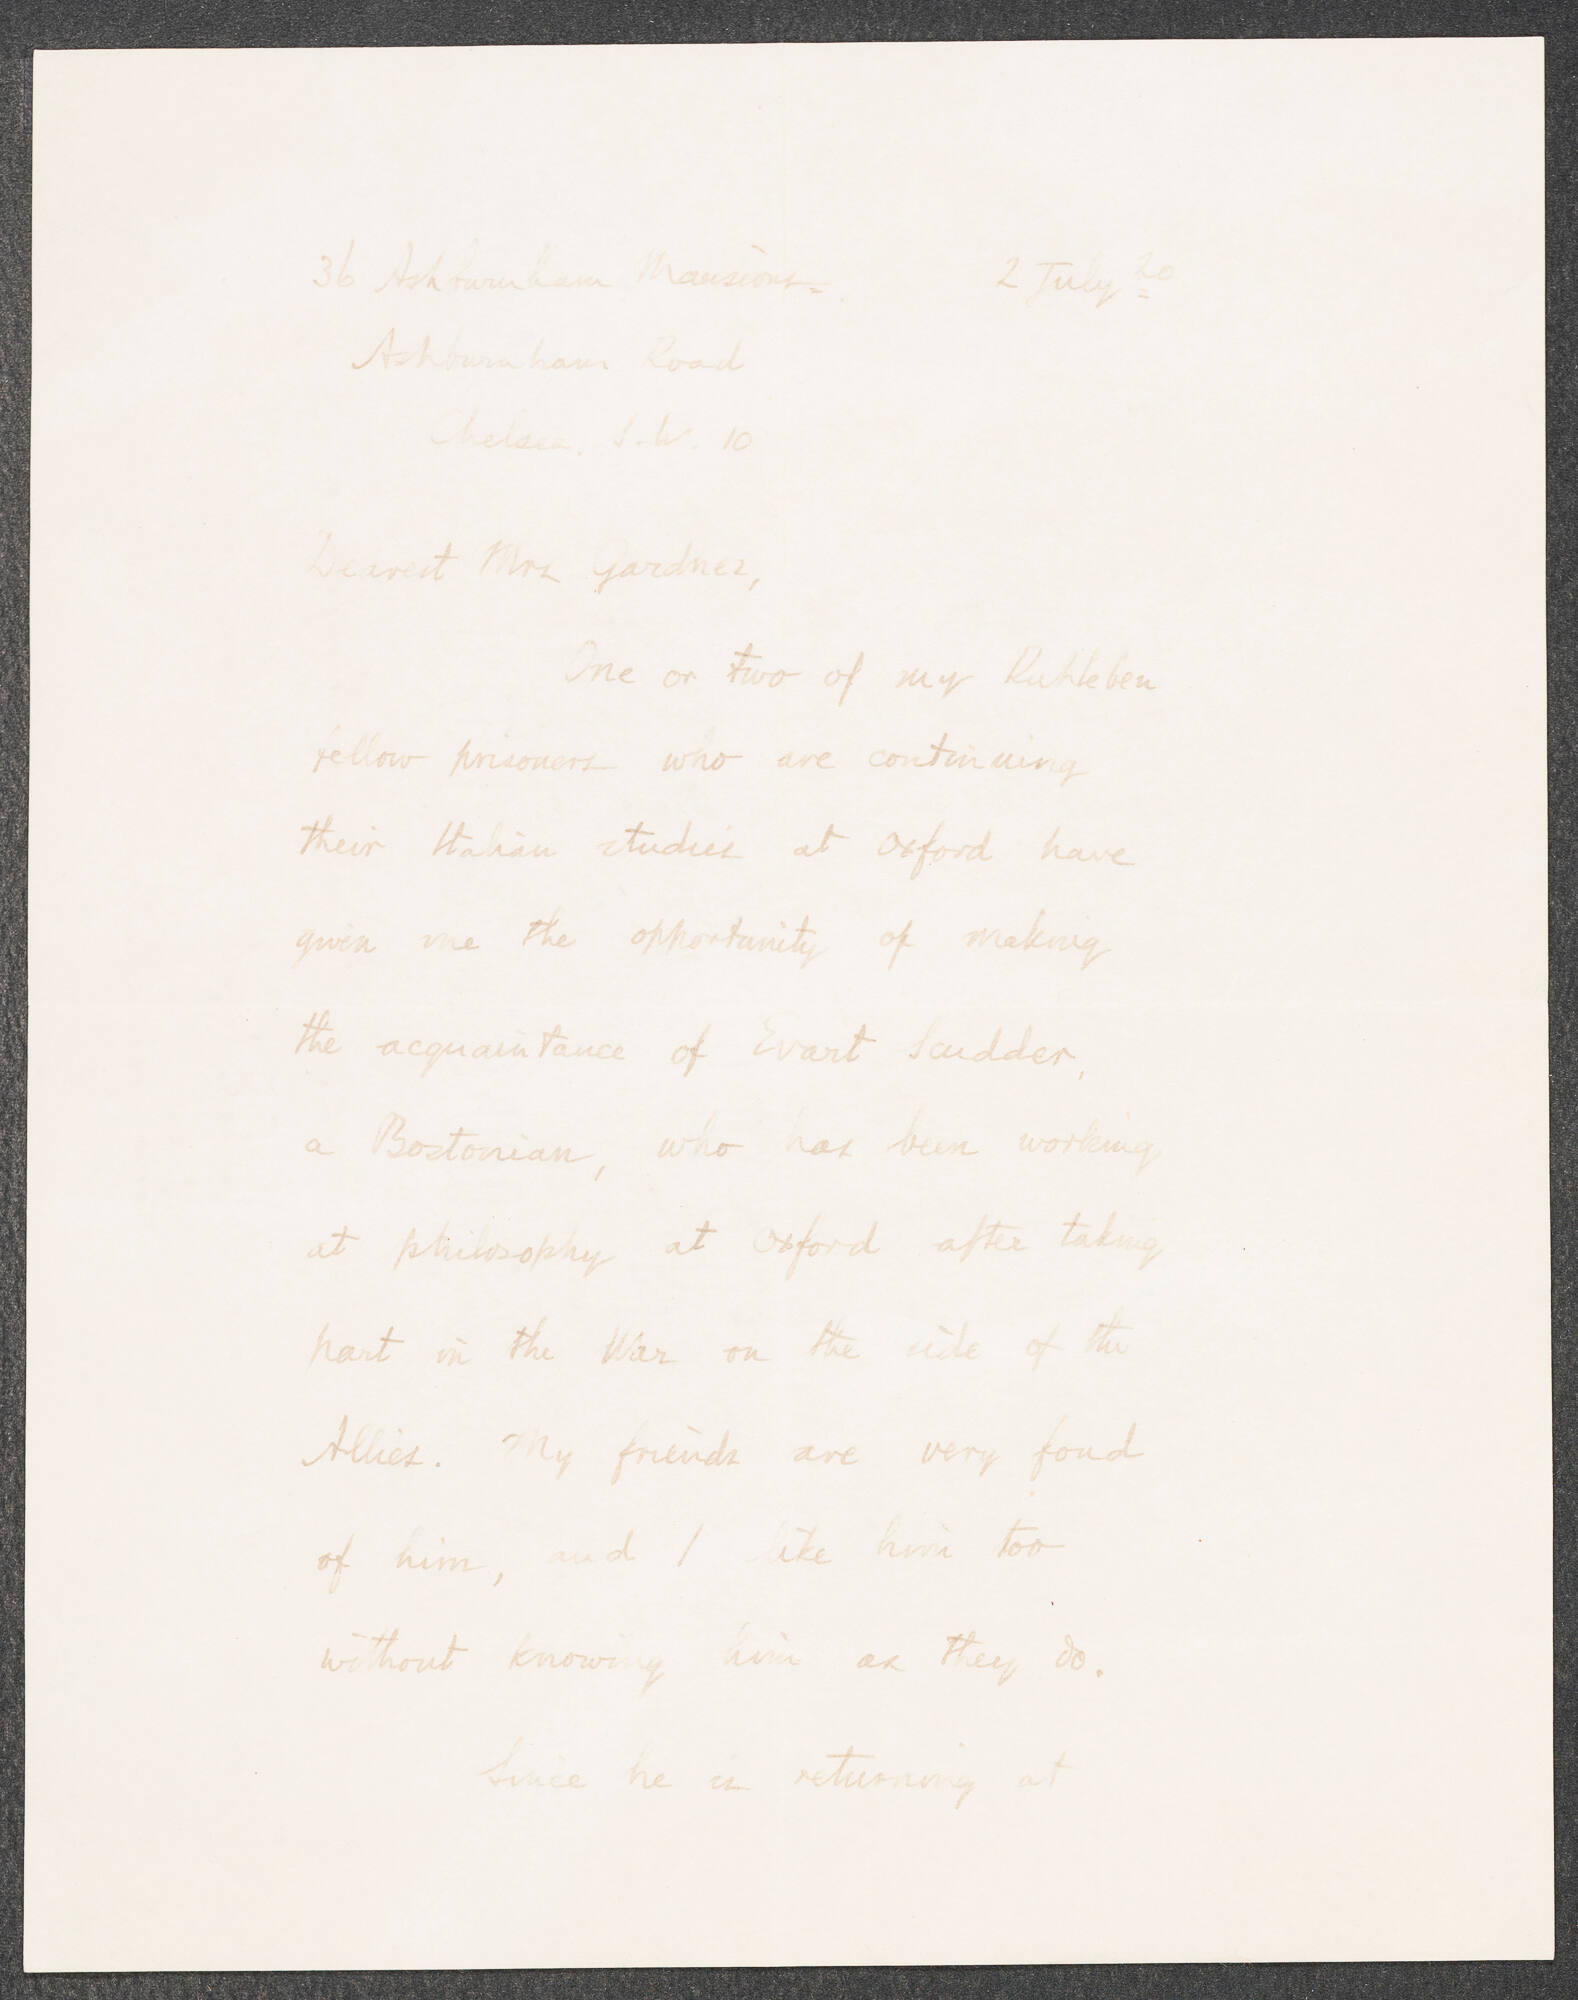 36 Ashburnham Mansions. 2 July 20
Ashburnham Road
Chelsea. S.W. 10
Dearest Mrs Gardner,
One or two of my Ruhleben
fellow prisoners who are continuing
their Italian studies at Oxford have
given me the opportunity of making
the acquaintance of Evart Scudder,
a Bostonian, who has been working
at philosophy at Oxford after taking
part in the War on the side of the
Allies. My friends are very fond
of him, and I like him too
without knowing him as they do.
Since he is returning at